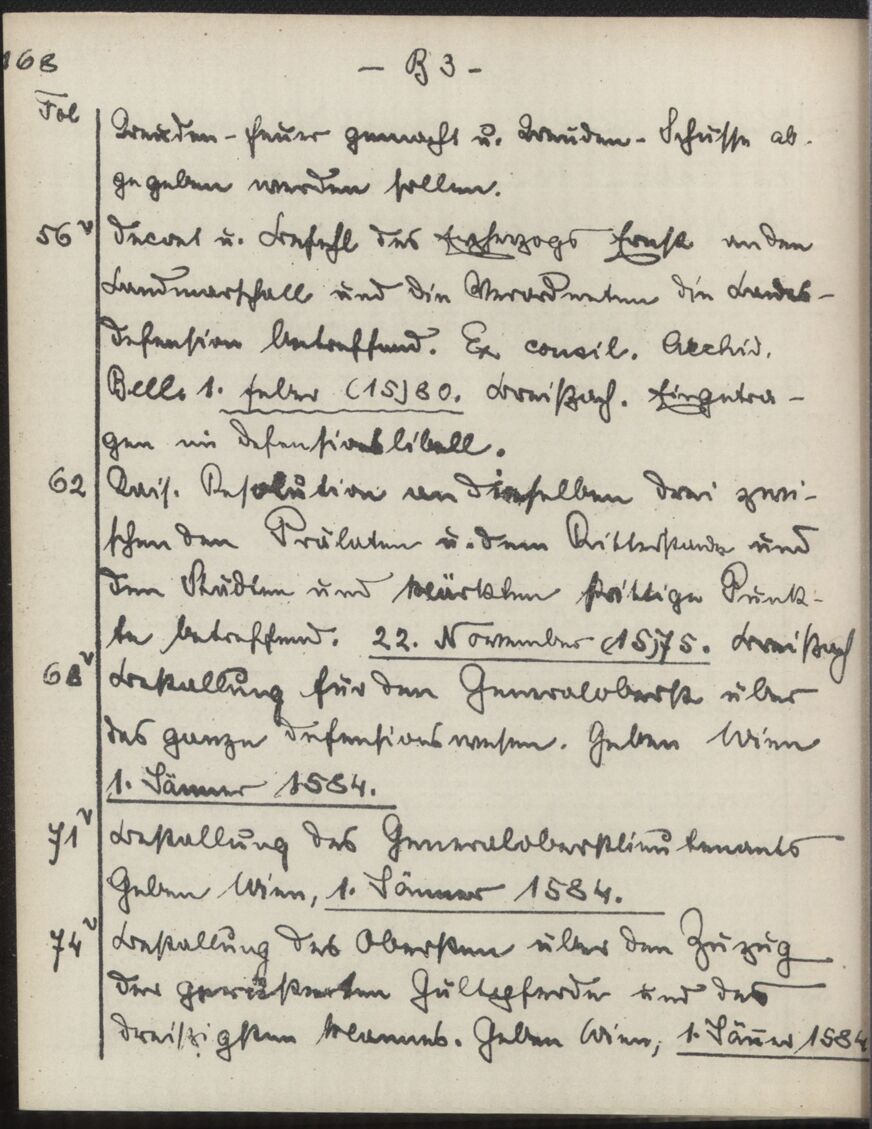 168
- B 3 -
Fol
Kreuden-feuer gemacht u. Kreuden-Schüsse ab-
gegeben werden sollen.
56v Decret u. Befehl des Erzherzogs Ernst an den
Landmarschall und die Verordneten die Landes-
defension betreffend. Ex consil. Archid.
Bell. 1. Feber (15)80. Breißach. Eingetra-
gen im Defensionslibell.
62 Kais. Resolution an dieselben drei zwi-
schen den Prälaten u. dem Ritterstande und
den Städten und Märkten strittige Punk-
te betreffend. 22. November (15)75.
68v Bestallung für den Generaloberst über
das ganze Defensionswesen. Geben Wien
1. Jänner 1584.
71v Bestallung des Generaloberstlieutenants
Geben Wien, 1. Jänner 1584.
74v Bestallung des Obersten über den Zuzug
der gerüsteten Gültpferde und des
dreißigsten Mannes. Geben Wien, 1. Jän̄er 1584